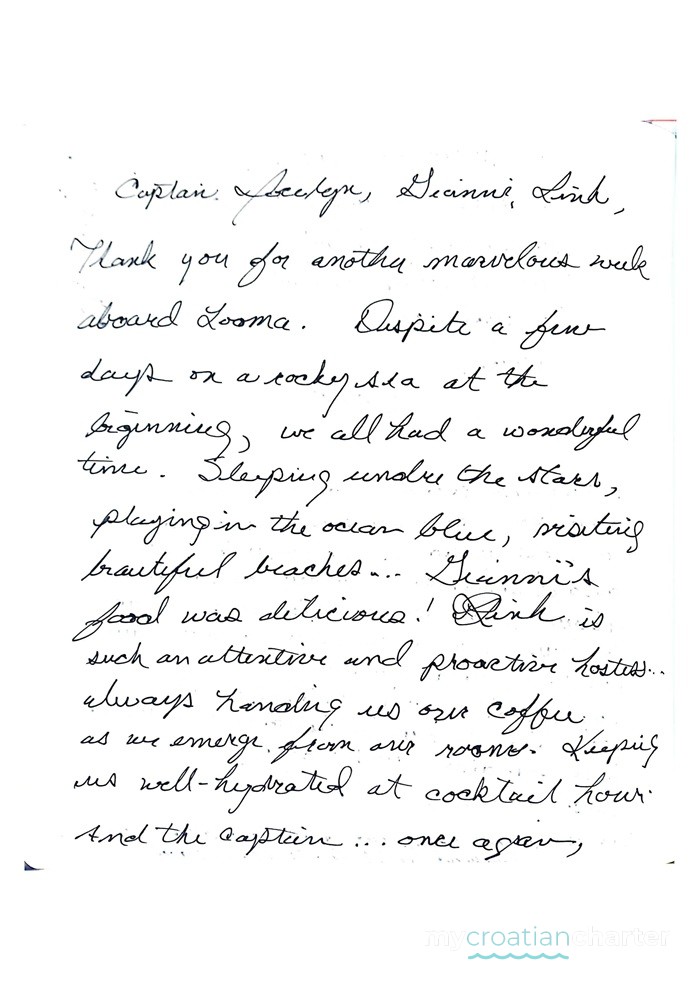 Captain Jocelyn, Gianni, Link,
Thank you for another marvelous week
aboard Looma. Despite a few
days on a rocky sea at the
beginning, we all had a wonderful
time. Sleeping under the stars,
playing in the ocean blue, visiting
beautiful beaches... Gianni's
food was delicious! Link is
such an attentive and proactive hostess...
always handing us our coffee
as we emerge from our rooms. Keeping
us well-hydrated at cocktail hour.
And the captain... once again,
mycroatiancharter